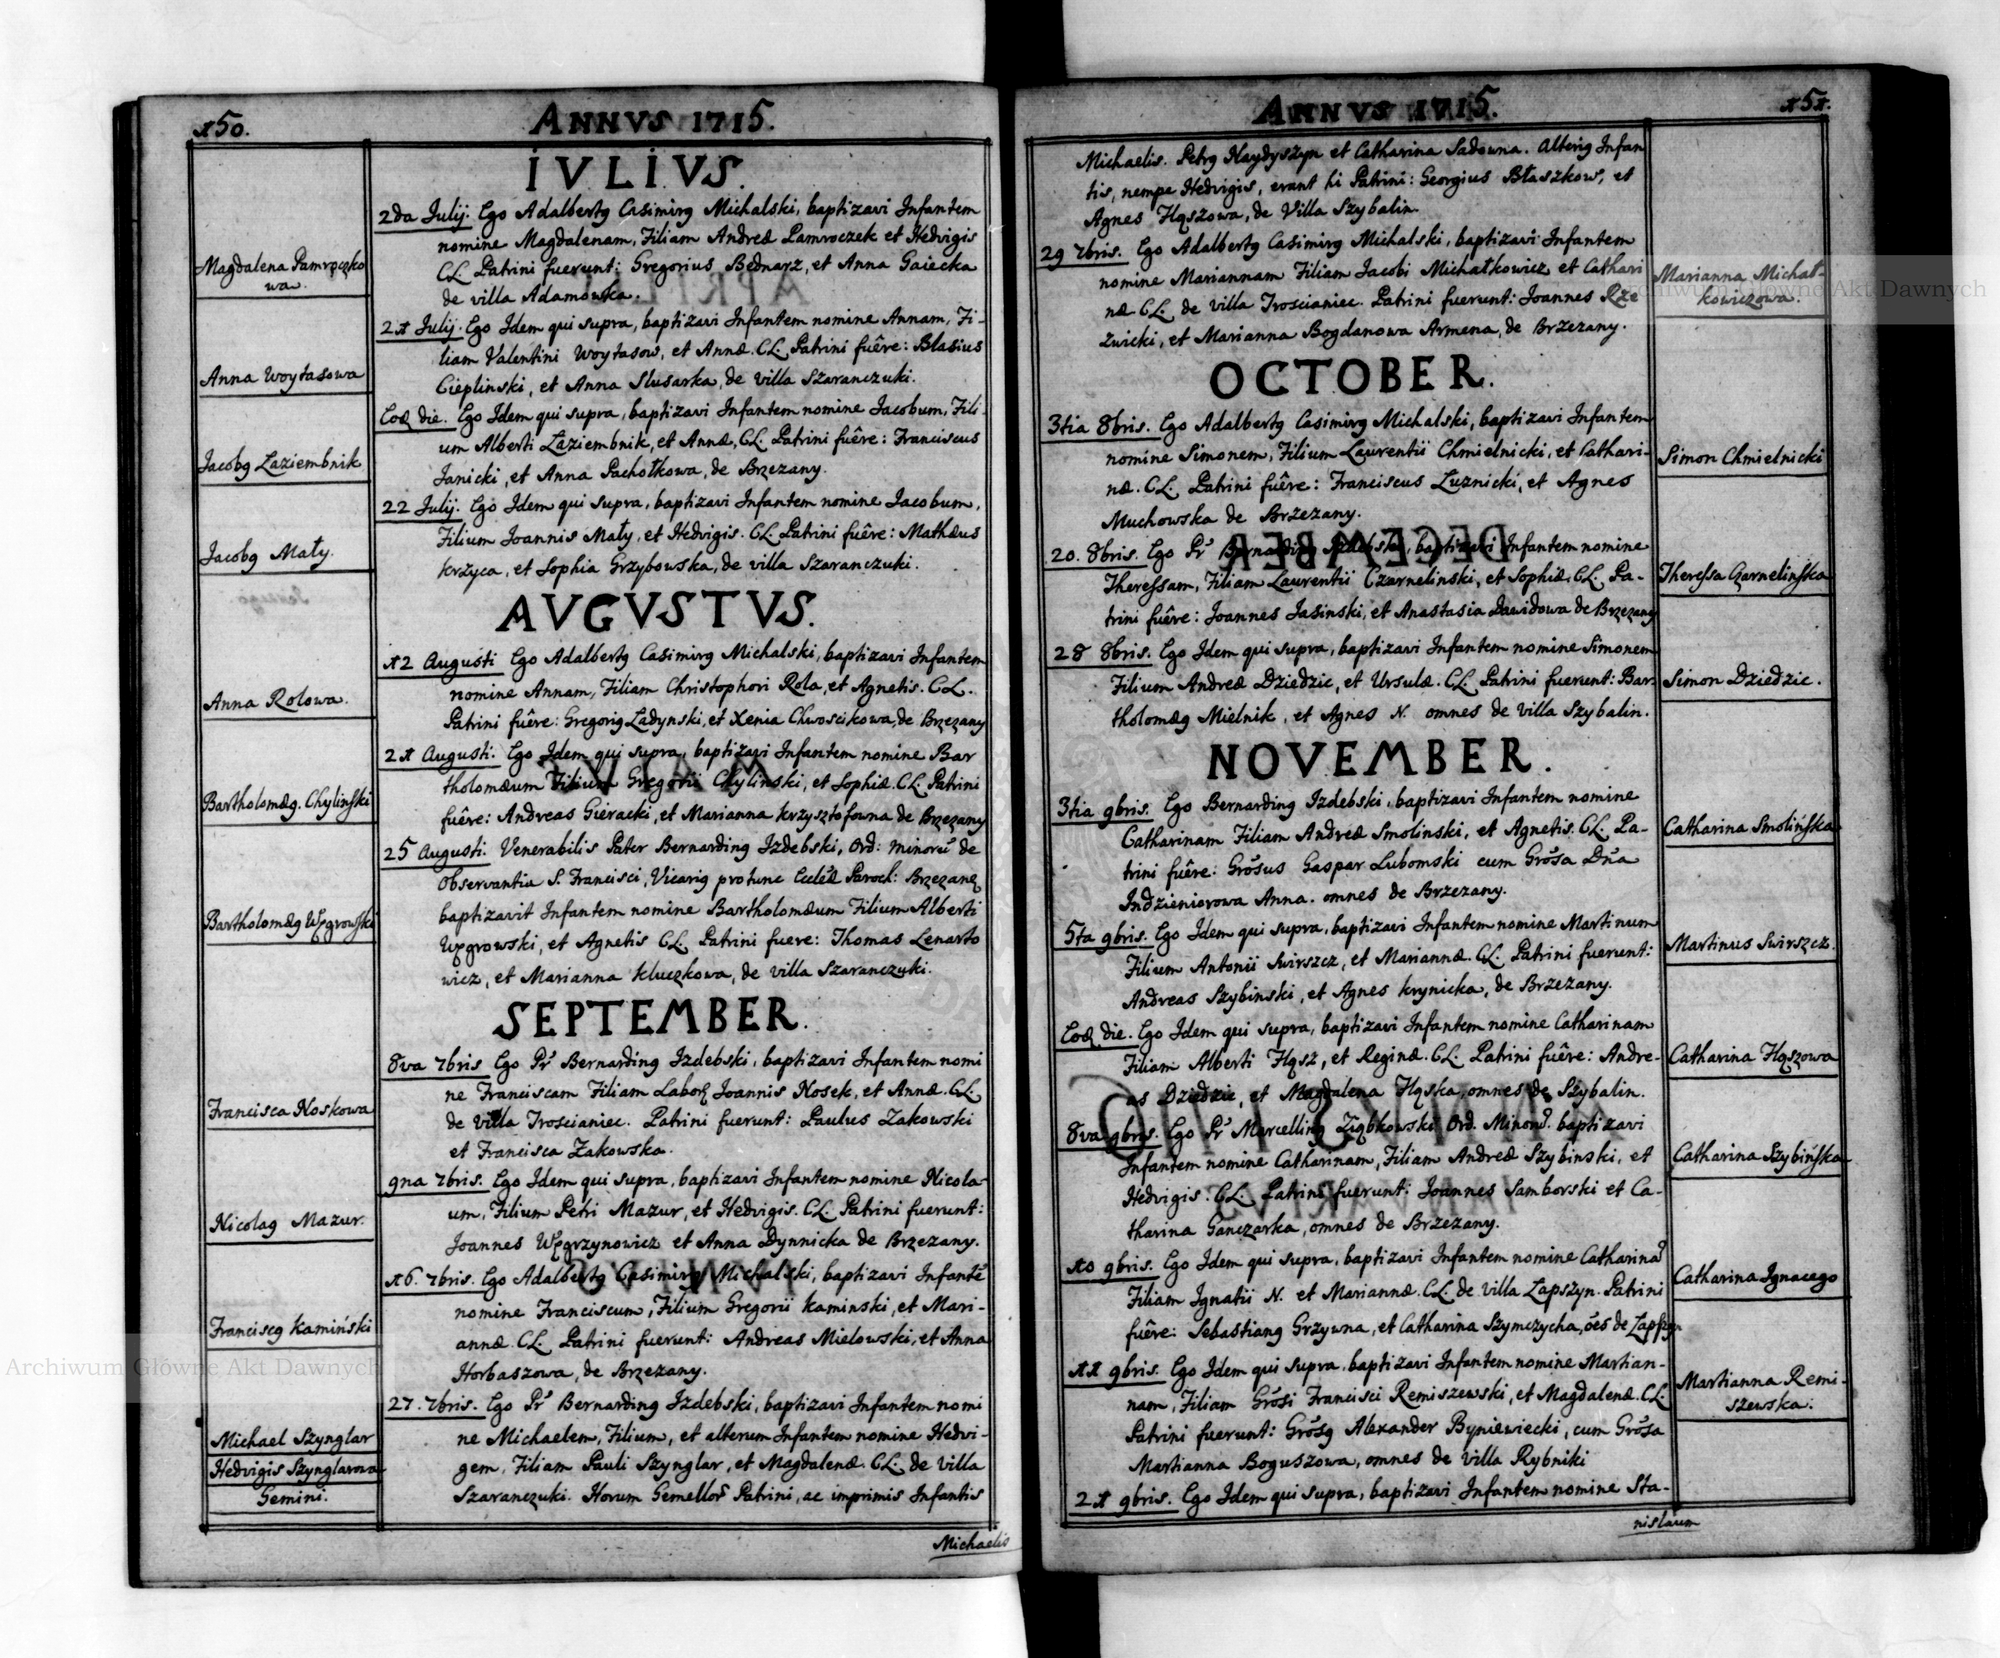 150.
ANNVS 1715.
IVLIVS.
Magdalena Pamroczko
wa.
2da Julij. Ego Adalbertg Casimirg Michalski, baptizavi Infantem
nomine Magdalenam, Filiam Andreæ Pamroczek et Hedvigis
CL. Patrini fuerunt: Gregorius Bednarz, et Anna Gaiecka
de villa Adamowka.
Anna Woytasowa
21 Julij. Ego Idem qui supra, baptizavi Infantem nomine Annam, Fi-
liam Valentini Woytasow, et Annæ. CL. Patrini fuêre: Blasius
Cieplinski, et Anna Slusarka, de villa Szaranczuki.
Jacobg Laziembnik
Eoď die. Ego Idem qui supra, baptizavi Infantem nomine Jacobum, Fili-
um Alberti Laziembnik, et Annæ, CL. Patrini fuêre: Franciscus
Janicki, et Anna Pachołkowa, de Brzezany.
Jacobg Mały.
22 Julij. Ego Idem qui supra, baptizavi Infantem nomine Jacobum,
Filium Joannis Mały, et Hedvigis. CL. Patrini fuêre: Mathæus
Krzyca, et Sophia Grzybowska, de villa Szaranczuki.
AVGVSTVS.
Anna Rolowa.
12 Augusti Ego Adalbertg Casimirg Michalski, baptizavi Infantem
nomine Annam, Filiam Christophori Rola, et Agnetis. CL.
Patrini fuêre: Gregorig Ladynski, et Xenia Chwoscikowa, de Brzezany
Bartholomæg. Chyliński
21 Augusti. Ego Idem qui supra, baptizavi Infantem nomine Bar
tholomæum Filium Gregorii Chylinski, et Sophiæ. CL. Patrini
fuêre: Andreas Gieracki, et Marianna Krzysztofowna de Brzezany
Bartholomæg Węgrowski
25 Augusti. Venerabilis Pater Bernarding Izdebski, Ord: Minorū de
Observantia S. Francisci, Vicarig protunc Eccłæ Paroch: Brzezanę
baptizavit Infantem nomine Bartholomæum Filium Alberti
Węgrowski, et Agnetis CL. Patrini fuere: Thomas Lenarto
wicz, et Marianna Kluczkowa, de villa Szaranczuki.
SEPTEMBER.
Francisca Noskowa
8va 7bris Ego Pr Bernarding Izdebski, baptizavi Infantem nomi
ne Franciscam Filiam Labor Joannis Nosek, et Annæ. CL.
de villa Troscianiec. Patrini fuerunt: Paulus Zakowski
et Francisca Zakowska.
Nicolag Mazur.
9na 7bris. Ego Idem qui supra, baptizavi Infantem nomine Nicola-
um, Filium Petri Mazur, et Hedvigis. CL. Patrini fuerunt:
Joannes Węgrzynowicz et Anna Dynnicka de Brzezany.
Franciscg Kamiński
16. 7bris. Ego Adalbertg Casimirg Michalski, baptizavi Infantē
nomine Franciscum, Filium Gregorii Kaminski, et Mari-
annæ. CL. Patrini fuerunt: Andreas Mielowski, et Anna
Horbaszowa, de Brzezany.
Michael Szynglar
Hedvigis Szynglarowa
Gemini.
27. 7bris. Ego Pr Bernarding Izdebski, baptizavi Infantem nomi
ne Michaelem, Filium, et alterum Infantem nomine Hedvi-
gem, Filiam Pauli Szynglar, et Magdalenæ. CL. de villa
Szaranczuki. Horum Gemellor Patrini, ac imprimis Infantis
Michaelis
151.
ANNVS 1715.
Michaelis. Petrg Naydyszyn et Catharina Sadowna. Alterig Infan
tis, nempe Hedvigis, erant hi Patrini: Georgius Błaszkow, et
Agnes Hąszowa, de Villa Szybalin.
Marianna Michał-
kowiczowa.
29 7bris. Ego Adalbertg Casimirg Michalski, baptizavi Infantem
nomine Mariannam Filiam Jacobi Michałkowicz et Cathari
næ CL. de villa Troscianiec. Patrini fuerunt: Joannes Rze
zwicki, et Marianna Bogdanowa Armena, de Brzezany.
OCTOBER.
Simon Chmielnicki
3tia 8bris. Ego Adalbertg Casimirg Michalski, baptizavi Infantem
nomine Simonem, Filium Laurentii Chmielnicki, et Cathari-
næ. CL. Patrini fuêre: Franciscus Luznicki, et Agnes
Muchowska de Brzezany.
Theressa Czarnelińska
20. 8bris. Ego Pr Bernarding Izdebski, baptizavi Infantem nomine
Theressam, Filiam Laurentii Czarnelinski, et Sophiæ. CL. Pa-
trini fuêre: Joannes Jasinski, et Anastasia Dawidowa de Brzezany
Simon Dziedzic.
28 8bris. Ego Idem qui supra, baptizavi Infantem nomine Simonem
Filium Andreæ Dziedzic, et Ursulæ. CL. Patrini fuerunt: Bar
tholomæg Mielnik, et Agnes N. omnes de villa Szybalin.
NOVEMBER.
Catharina Smolińska
3tia 9bris. Ego Bernarding Izdebski, baptizavi Infantem nomine
Catharinam Filiam Andreæ Smolinski, et Agnetis. CL. Pa-
trini fuêre: Grõsus Gaspar Lubomski cum Grõsa Dña
Indzieniorowa Anna. omnes de Brzezany.
Martinus Swirszcz.
5ta 9bris. Ego Idem qui supra, baptizavi Infantem nomine Martinum
Filium Antonii Swirszcz, et Mariannæ. CL. Patrini fuerunt:
Andreas Szybinski, et Agnes Krynicka, de Brzezany.
Catharina Hąszowa
Eoď die. Ego Idem qui supra, baptizavi Infantem nomine Catharinam
Filiam Alberti Hąsz, et Reginæ. CL. Patrini fuêre: Andre-
as Dziedzic, et Magdalena Hąska, omnes de Szybalin.
Catharina Szybińska
8va 9bris. Ego Pr Marcelling Ziąbkowski Ord. Minorū. baptizavi
Infantem nomine Catharinam, Filiam Andreæ Szybinski, et
Hedvigis. CL. Patrini fuerunt: Joannes Samborski et Ca-
tharina Ganczarka, omnes de Brzezany.
Catharina Ignacego
10 9bris. Ego Idem qui supra, baptizavi Infantem nomine Catharinā
Filiam Ignatii N. et Mariannæ. CL. de villa Lapszyn. Patrini
fuêre: Sebastiang Grzywna, et Catharina Szymczycha, ões de Lapszyn
Martianna Remi-
szewska.
11 9bris. Ego Idem qui supra, baptizavi Infantem nomine Martian-
nam, Filiam Grõsi Francisci Remiszewski, et Magdalenæ. CL.
Patrini fuerunt: Grõsg Alexander Byniewiecki, cum Grõsa
Martianna Boguszowa, omnes de villa Rybniki
21 9bris. Ego Idem qui supra, baptizavi Infantem nomine Sta-
nislaum
Archiwum Główne Akt Dawnych
Archiwum Główne Akt Dawnych